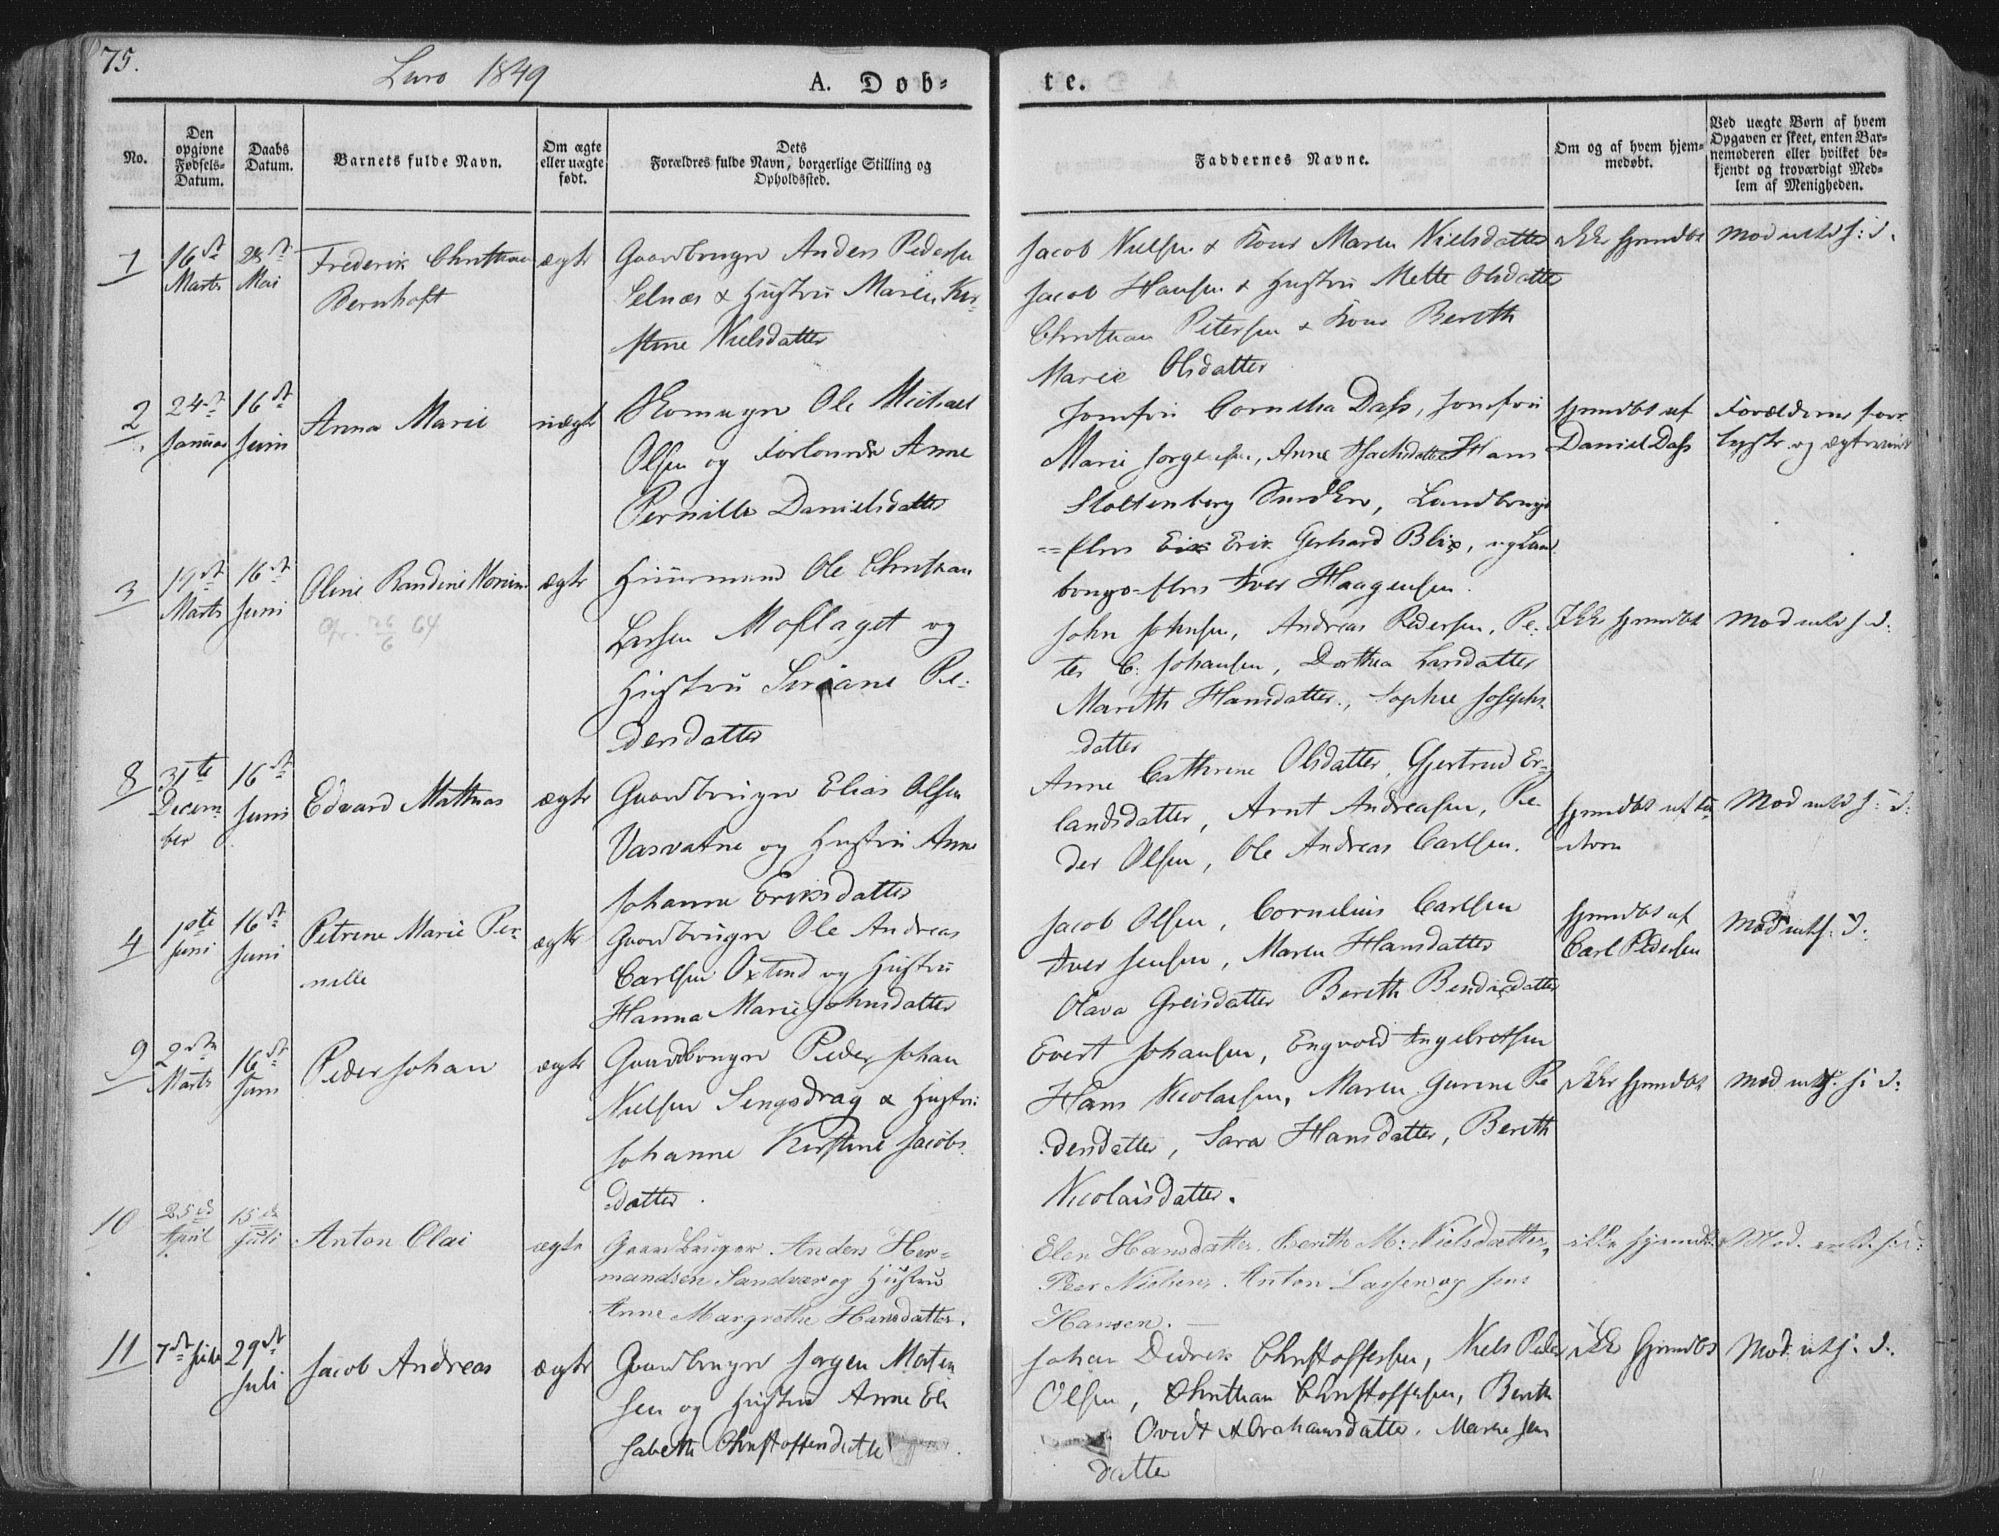 75.
Lurö 1849
A. Døb-
te.
No.
Den opgivne Fødsels-Datum.
Daabs Datum.
Barnets fulde Navn.
Om ægte eller uægte født.
Dets Forældres fulde Navn, borgerlige Stilling og Opholdssted.
Faddernes Navne.
Om og af hvem hjem-medøbt.
Ved uægte Børn af hvem Opgaven er skeet, enten Bar-nemoderen eller hvilket be-kjendt og troværdigt Med-lem af Menigheden.
1
16de Marts
28de Mai
Frederik Christian
Bernhoft
ægte
Gaardbruger Anders Pedersen
Selnæs & Hustru Maren Kir-
stine Nielsdatter
Jacob Nielsen & Kone Maren Nielsdatter
Jacob Hansen & Hustru Mette Olsdatter
Christian Petersen & Kone Bereth
Marie Olsdatter
ikke hjemdbt
2
24de Januar
16de Juni
Anna Marie
uægte
Ole Michael
Olsen og Forlovede Anne
Pernille Danielsdatter
Jomfru Cornelia Dass, Jomfru
Marie Jörgensen, Anne Isachsdatter Hans
Stoltenberg
Erik Gerhard Blix,
Iver Haagensen.
hjemdbt af
Daniel Dass
3
19de Marts
16de Juni
Oline Randine
26/6 64
ægte
Huusmand Ole Christian
Larsen Moflaget og
Hustru Siriane Pe-
dersdatter
John Johnsen, Andreas Pedersen, Pe-
ter C. Johansen, Dorthea Larsdatter
Mareth Hansdatter, Sophie Josephs-
datter
Ikke hjemdbt
8
31te Decem-ber
16de Juni
Edvard Mathias
ægte
Gaardbruger Elias Olsen
Vasvatne og Hustru Anne
Johanna Eriksdatter
Anne Cathrine Olsdatter, Gjertrud Er-
landsdatter, Arnt Andreasen, Pe-
der Olsen, Ole Andreas Carlsen.
4
1ste Juni
16de Juni
Petrine Marie Per-
nille
ægte
Gaardbruger Ole Andreas
Carlsen Oxtind og Hustru
Hanna Marie Johnsdatter
Jacob Olsen, Cornelius Carlsen
Iver Jensen, Maren Hansdatter
Olava Greisdatter Bereth Bendixdatter
hjemdbt af
Carl Pedersen
9
2den Marts
16de Juni
Peder Johan
ægte
Gaardbruger Peder Johan
Nielsen Sengsdrag & Hustru
Johanne Kirstine Jacobs-
datter.
Evert Johansen, Engvold Ingebretsen
Hans Nicolaisen, Maren Gurine Pe
dersdatter, Sara Hansdatter, Bereth
Nicolaisdatter.
ikke hjemdbt
10
25de April
15de Juli
Anton Olai
ægte
Gaardbruger Anders Her-
mandsen Sandvær og Hustru
Anne Margrethe Hansdatter.
Elen Hansdatter. Berith M: Nielsdatter,
Peer Nielsen. Anton Larsen og Jens
Hansen.
11
29de Juli
Jacob Andreas
ægte
Gaardbruger Jørgen Morten
sen og Hustru Anne Eli
sabeth Christoffersdatter
Johan Didrik Christoffersen, Niels Peder
Olsen, Christian Christoffersen, Bereth
Abrahamsdatter. Maren Jens
datter
ikke hjemdbt